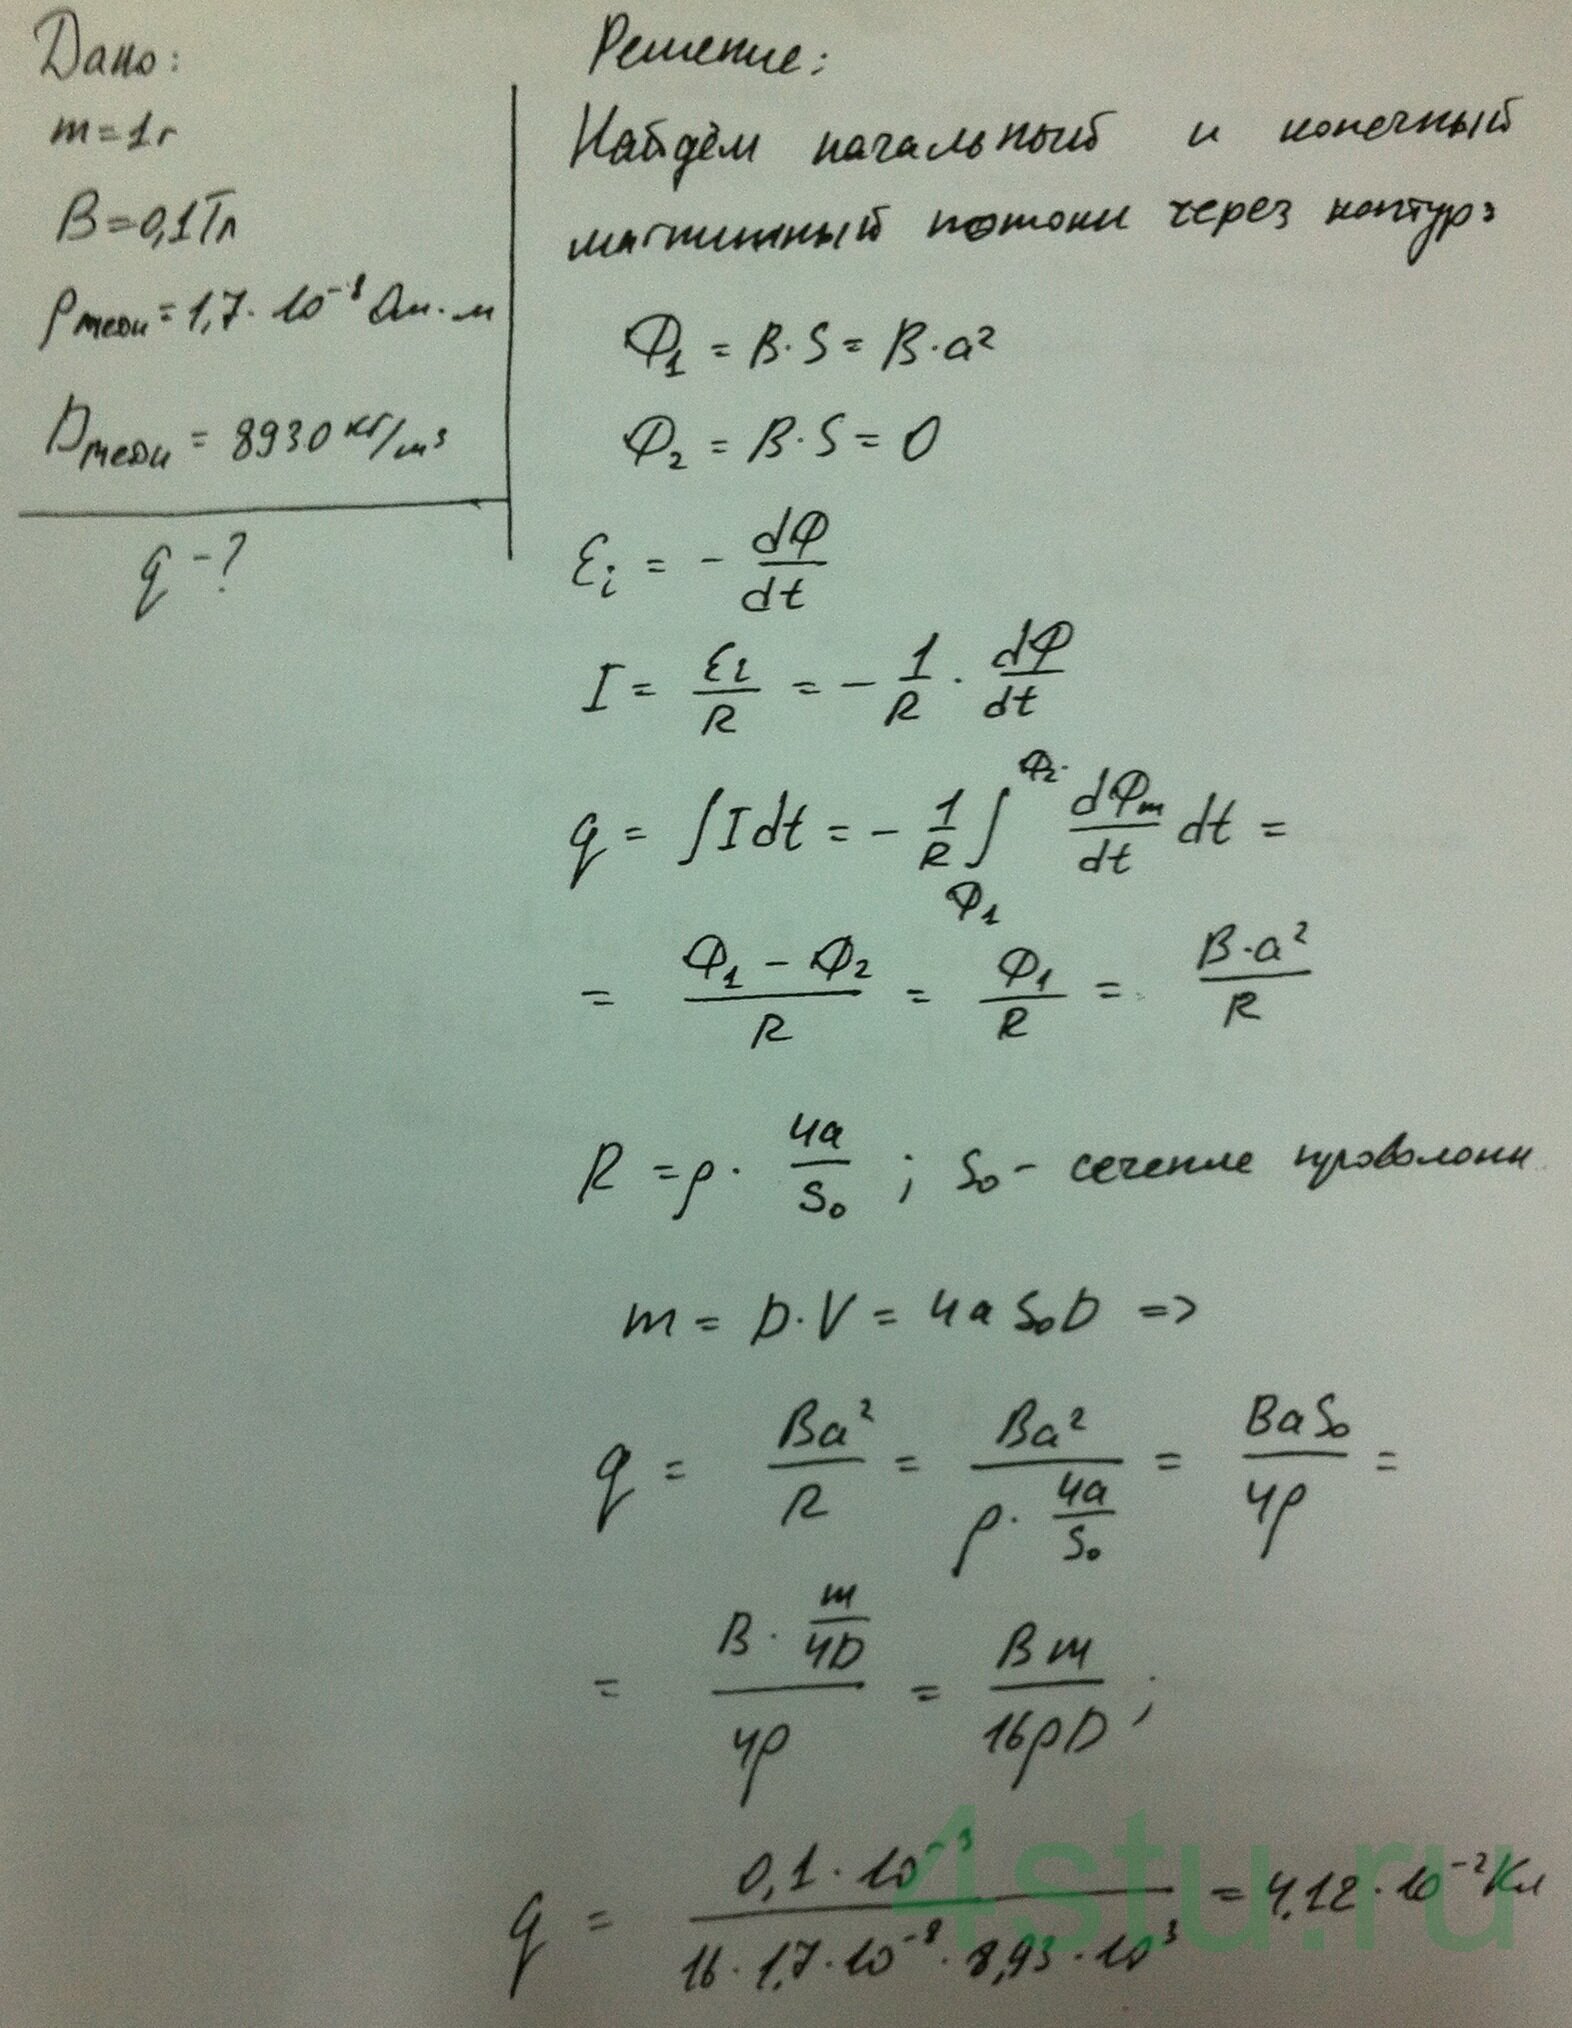 Дано:
m=1г
B=0,1Тл
ρмеди=1,7·10⁻⁸ Ом·м
Dмеди = 8930 кг/м³
q-?
Решение:
Найдём начальный и конечный
магнитный потоки через контур:
Φ₁ = B·S = B·a²
Φ₂ = B·S = 0
εi = - dΦ/dt
I = εi/R = - 1/R · dΦ/dt
q = ∫Idt = - 1/R ∫_Φ₁^Φ₂ dΦm/dt dt =
= (Φ₁ - Φ₂)/R = Φ₁/R = B·a²/R
R = ρ· 4a/S₀ ; S₀ - сечение проволоки
m = D·V = 4aS₀D =>
q = Ba²/R = Ba²/(ρ· 4a/S₀) = BaS₀/4ρ =
= (B· m/4D)/4ρ = Bm/16ρD ;
q = 0,1·10⁻³/(16·1,7·10⁻⁸·8,93·10³) = 4,12·10⁻² Кл
4stu.ru